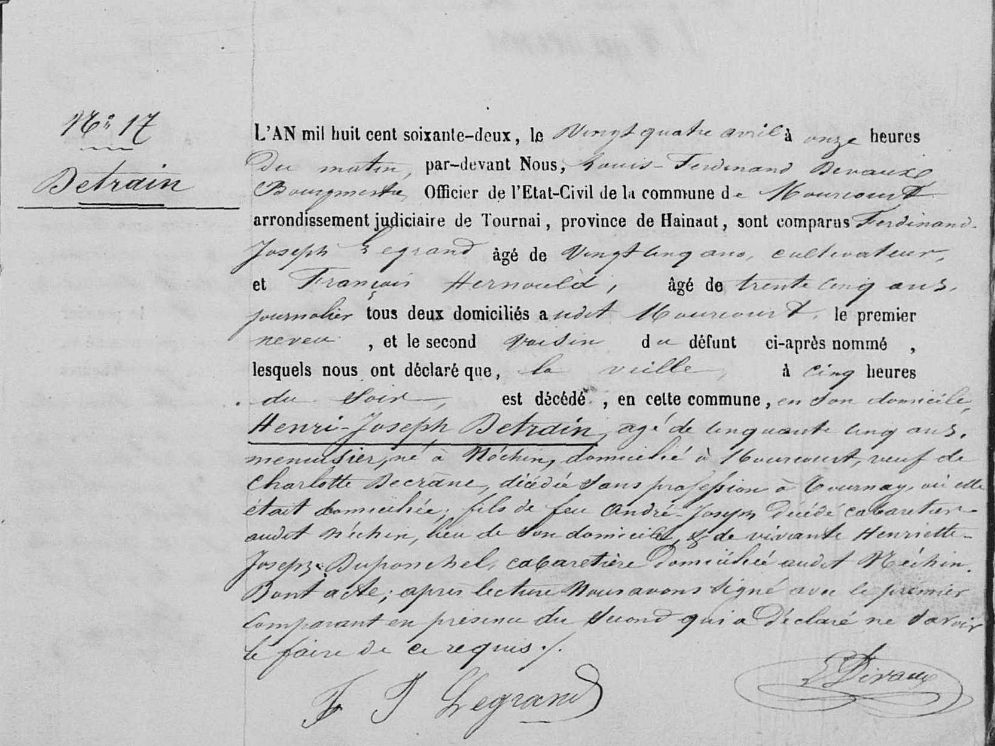 N° 17
Detrain
L'AN mil huit cent soixante-deux, le Vingt quatre avril à onze heures
du matin, par-devant Nous, Louis Ferdinand Devaux
Bourgmestre, Officier de l'Etat-Civil de la commune de Mourcourt
arrondissement judiciaire de Tournai, province de Hainaut, sont comparus Ferdinand-
Joseph Legrand âgé de Vingt cinq ans, cultivateur,
et François Hernould, âgé de trente cinq ans,
journalier tous deux domiciliés audit Mourcourt, le premier
neveu, et le second voisin du défunt ci-après nommé,
lesquels nous ont déclaré que, la veille, à cinq heures
du soir, est décédé, en cette commune, en son domicile,
Henri-Joseph Detrain, agé de cinquante cinq ans,
menuisier, né à Néchin, domicilié à Mourcourt, veuf de
Charlotte Decrane, décédée sans profession à Tournay, où elle
était domiciliée; fils de feu André-Joseph décédé cabaretier
audit Néchin, lieu de son domicile, & de vivante Henriette-
Joseph Duponchel, cabaretière domiciliée audit Néchin.
Dont acte; après lecture Nous avons signé avec le premier
comparant en présence du second qui a déclaré ne savoir
le faire de ce requis ./.
F J Legrand
L Devaux